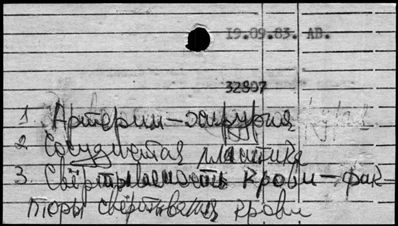 19.09.83. АВ.
32807
1 Артерии-хирургия
2 Сосудистая пластика
3. Свёртываемость крови-фак-
торы свёртывания крови